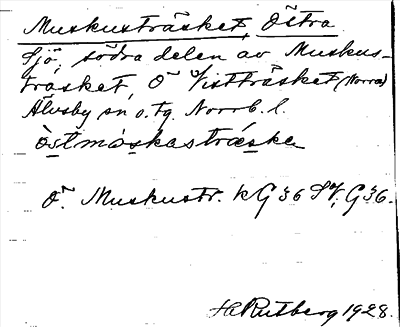 Muskusträsket, Östra
Sjö, södra delen av Muskus-
träsket, O Vistträsket (Norra)
Älvsby sn o. tg. Norrb. l.
östmöskasträske
Ö. Muskustr. kG 36 SV, G 36.
H. Rutberg 1928.